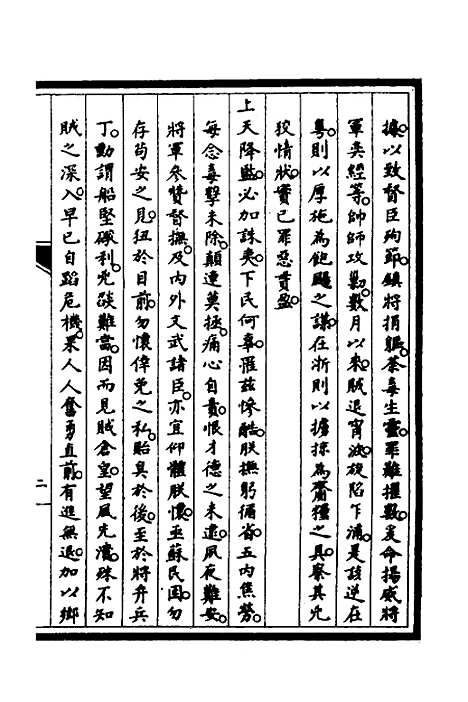 擾以致督臣殉節鎮將捐軀荼毒生靈罪難擢數爰命揚威將
軍奕經等帥師攻剿數月以來賊退甯波旋陷乍浦是該逆在
粵則以厚施為飽颺之謀在浙則以擄掠為齎糧之具察其兇
狡情狀實已罪惡貫盈
上天降監必加誅夷下民何辜罹茲慘酷朕撫躬循省五內焦勞
每念毒擊未除顛連莫拯痛心自責恨才德之未逮夙夜難安
將軍參贊督撫及內外文武諸臣亦宜仰體朕懷亟蘇民困勿
存苟安之見狃於目前勿懷倖免之私貽臭於後至於將弁兵
丁動謂船堅礮利兇燄難當因而見賊倉皇望風先潰殊不知
賊之深入早已自蹈危機果人人奮勇直前有進無退加以鄉
二